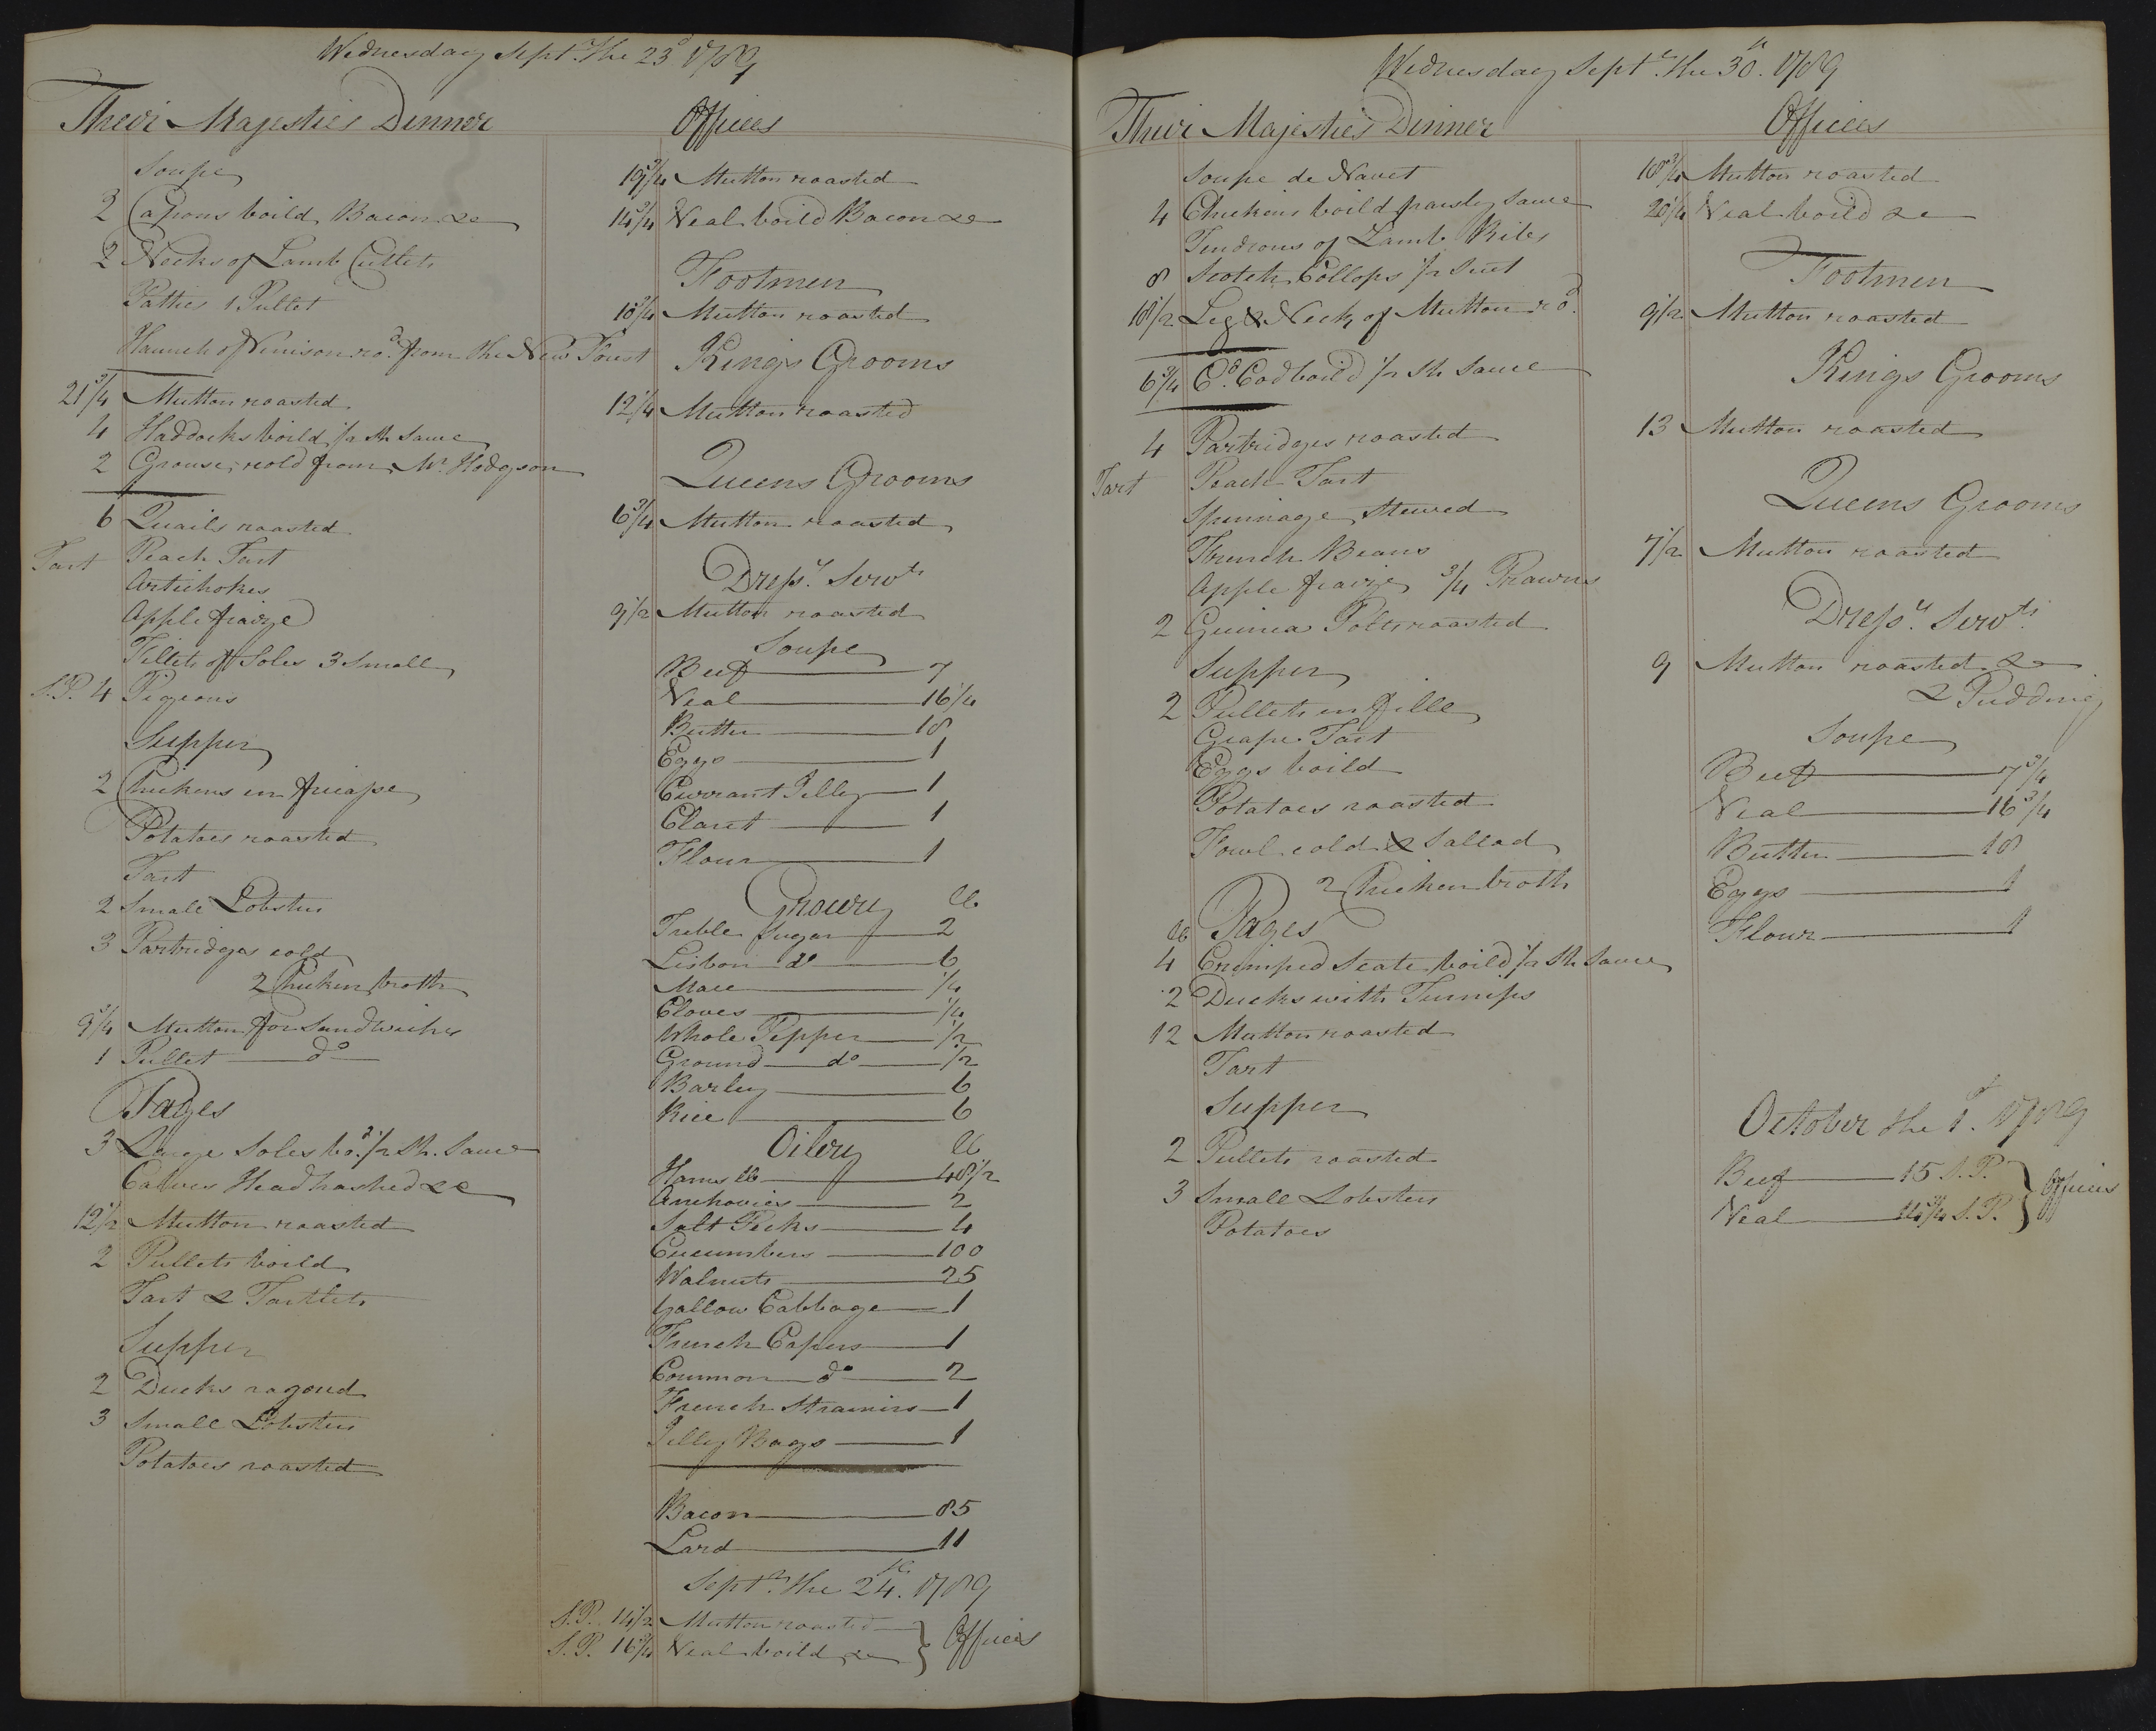 Wednesday Sept.r the 23d 1789
Their Majesties Dinner
Soupe
2 Capons boild Bacon &c
2 Necks of Lamb Cutlets
Patties 1 Pullet
Haunch of Venison ro.d from the New Forest
21 3/4 Mutton roasted
4 Haddocks boild 1/2 Sh Sauce
2 Grouse, cold from Mr. Hodgson
6 Quails roasted
Tart Peach Tart
Artichokes
Apple fraize
Fillets of Soles 3 Small
S.P. 4 Pigeons
Supper
2 Chickens en fricasse
Potatoes roasted
Tart
2 Small Lobsters
3 Partridges cold
2 Chicken broth
9 3/4 Mutton for Sandwiches
1 Pullet do
Pages
3 Large Soles bo.d 1/2 Sh. Sauce
Calves Head hashed &c
12 1/2 Mutton roasted
2 Pullets boild
Tart & Tartlets
Supper
2 Ducks ragoud
3 Small Lobsters
Potatoes roasted
Offices
19 3/4 Mutton roasted
14 3/4 Veal boild Bacon &c
Footmen
10 3/4 Mutton roasted
Kings Grooms
12 1/4 Mutton roasted
Queens Grooms
6 3/4 Mutton roasted
Dress.rs Serv.ts
9 1/2 Mutton roasted
Soupe
Beef 7
Veal 16 1/4
Butter 18
Eggs 1
Currant Jelley 1
Claret 1
Flour 1
Grocery lb
Treble Sugar 2
Lisbon do 6
Mace 1/4
Cloves 1/4
Whole Pepper 1/2
Ground do 1/2
Barley 6
Rice 6
Oilery lb
Hams lb 48 1/2
Anchovies 2
Salt Pecks 4
Cucumbers 100
Walnuts 25
Yallow Cabbage 1
French Capers 1
Common do 2
French Strainers 1
Jelly Bags 1
Bacon 85
Lard 11
Sept.r the 24.th 1789
S.P. 14 1/2 Mutton roasted
S.P. 16 3/4 Veal boild &c } Offices
Wednesday Sept.r the 30.th 1789
Their Majesties Dinner
Soupe de Navet
4 Chickens boild parsley Sauce
Tendrons of Lamb Ribs
8 Scotch Collops 1/2 Suet
18 1/2 Leg & Neck of Mutton ro.d
6 3/4 C.d Cod boild 1/2 Sh Sauce
4 Partridges roasted
Tart Peach Tart
Spinnage Stewed
French Beans
Apple fraize 3/4 Prawns
2 Guinea Polts roasted
Supper
2 Pullets en fille
Grape Tart
Eggs boild
Potatoes roasted
Fowl cold & Sallad
2 Chicken broth
lb Pages
4 Crimped Scate boild 1/2 Sh Sauce
2 Ducks with Turnips
12 Mutton roasted
Tart
Supper
2 Pullets roasted
3 Small Lobsters
Potatoes
Offices
18 3/4 Mutton roasted
20 1/4 Veal boild &c
Footmen
9 1/2 Mutton roasted
Kings Grooms
13 Mutton roasted
Queens Grooms
7 1/2 Mutton roasted
Dress.rs Serv.ts
9 Mutton roasted &c
& Pudding
Soupe
Beef 7 3/4
Veal 16 3/4
Butter 18
Eggs 1
Flour 1
October the 1.st 1789
Beef 15 S.P.
Veal 14 3/4 S.P. } Offices